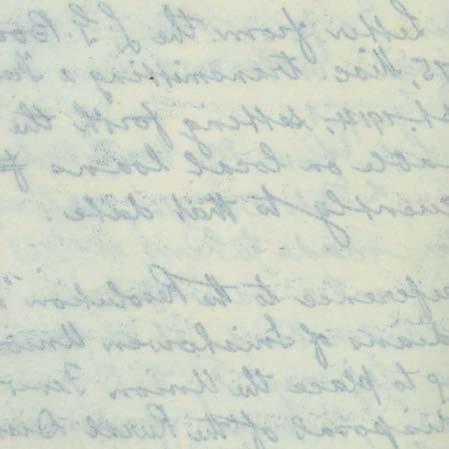 Letter from the L G Boa
Misc. transmitting a
1914, setting forth the
able on local loans f
quently to that date.
eference to the Resolution
dians of Inishowen Union
to place the Union Fever
disposal of the Rural Dis